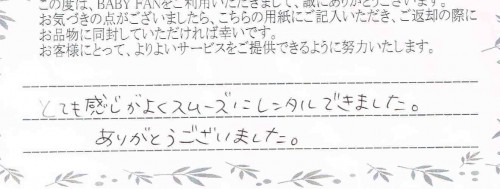 この度は、BABY FANをご利用いただきまして、誠にありがとうございます。
お気づきの点がございましたら、こちらの用紙にご記入いただき、ご返却の際に
お品物に同封していただければ幸いです。
お客様にとって、よりよいサービスをご提供できるように努力いたします。
とても感じがよくスムーズにレンタルできました。
ありがとうございました。